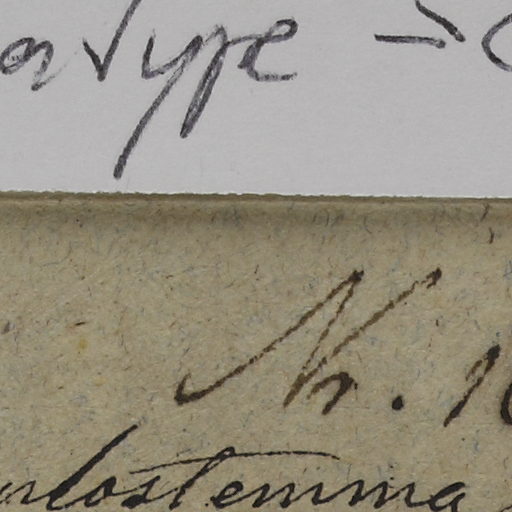 otype →
Nr. 1
ulostemma